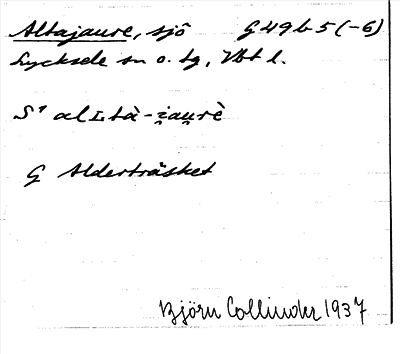 Altajaure, sjö G49b5(-6)
Lycksele sn o. tg, Vbt l.
S¹ alʟtà-i̯au̯rè
G Alderträsket
Björn Collinder 1937